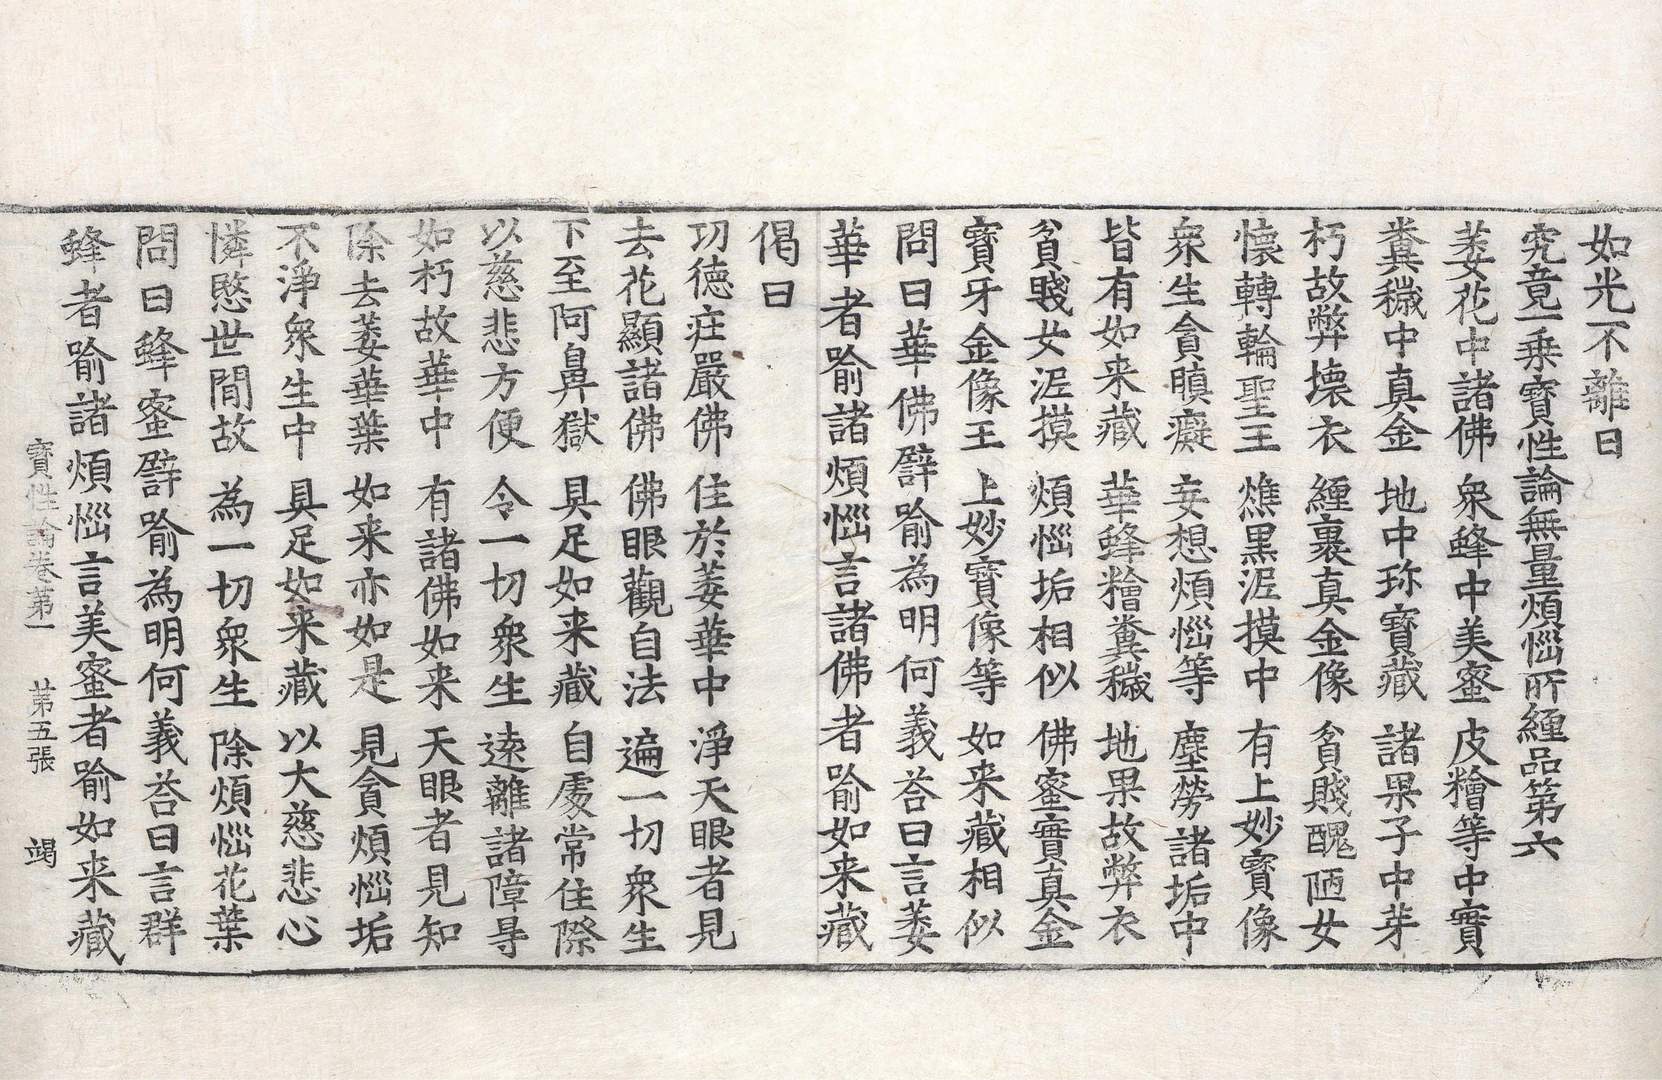 如光不離日
究竟一乗寳性論無量煩惱所纏品第六
萎花中諸佛　衆蜂中美蜜　皮糩等中實
糞穢中真金　地中珎寳藏　諸果子中芽
朽故弊壊衣　纏裹真金像　貧賤醜陋女
懷轉輪聖王　燋黒泥摸中　有上妙寳像
衆生貪瞋癡　妄想煩惱等　塵勞諸垢中
皆有如来藏　華蜂糩糞穢　地果故弊衣
貧賤女泥摸　煩惱垢相似　佛蜜實真金
寳牙金像王　上妙寳像等　如来藏相似
問曰華佛譬喻為明何義荅曰言萎
華者喻諸煩惱言諸佛者喻如来藏
偈曰
功德㽵嚴佛　住於萎華中　淨天眼者見
去花顯諸佛　佛眼觀自法　遍一切衆生
下至阿鼻獄　具足如来藏　自處常住際
以慈悲方便　令一切衆生　逺離諸障㝵
如朽故華中　有諸佛如来　天眼者見知
除去萎華葉　如来亦如是　見貪煩惱垢
不淨衆生中　具足如来藏　以大慈悲心
憐愍世間故　為一切衆生　除煩惱花葉
問曰蜂蜜譬喻為明何義荅曰言群
蜂者喻諸煩惱言美蜜者喻如来藏
寳性論卷第一　第五張　竭